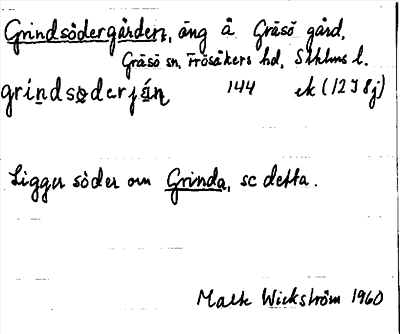 Grindsödergården, äng å Gräsö gård,
Gräsö sn, Frösåkers hd, Sthlms l.
144 ek (12J8j)
Ligger söder om Grinda, se detta.
Mats Wickström 1960